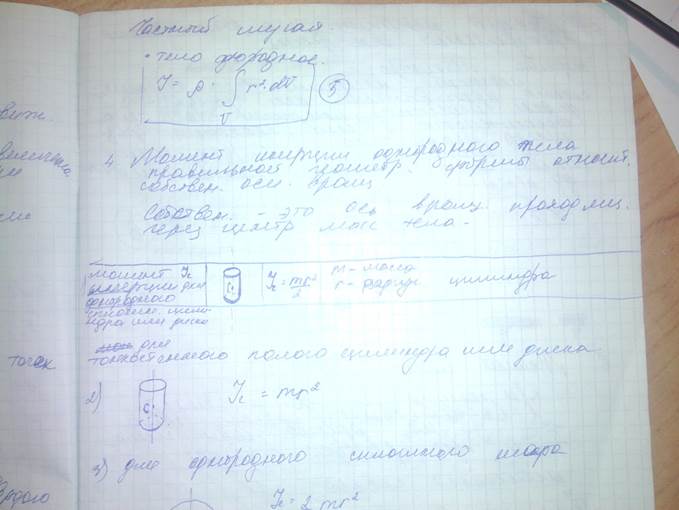 Частный случай
• тело однородное.
J = ρ · ∫ r² dV (5)
V
4. Момент инерции однородного тела
правильной геометр. формы относит.
собствен. оси вращ
Собствен. – это ось вращ. проходящ.
через центр масс тела -
момент Jc
инерции для
однородного
сплошн. цилин-
дра или диска
C
Jc = mr²/2
m - масса
r - радиус цилиндра
для
тонкостенного полого цилиндра или диска
2)
C
Jc = mr²
3) для однородного сплошного шара
Jc = 2 mr²
точек